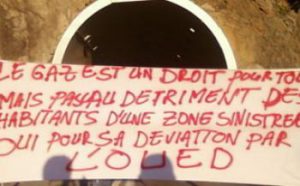 LE GAZ EST UN DROIT POUR TOUS
MAIS PAS AU DETRIMENT DES
HABITANTS D'UNE ZONE SINISTREE
OUI POUR SA DEVIATION PAR
L'OUED